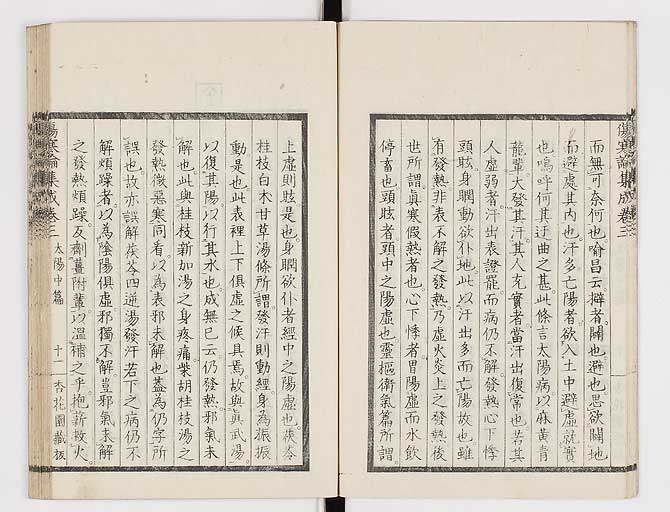 傷寒論集成卷三
而無可奈何也喻昌云擗者闢也避也思欲闢地
而避處其内也汗多亡陽者欲入土中避虛就實
也嗚呼何其迂曲之甚此條言太陽病以麻黄青
龍輩大發其汗其人充實者當汗出復常也若其
人虛弱者汗出表證罷而病仍不解發熱心下悸
頭眩身瞤動欲仆地此以汗出多而亡陽故也雖
有發熱非表不解之發熱乃虛火炎上之發熱後
世所謂眞寒假熱者也心下悸者胃陽虛而水飲
停畜也頭眩者頭中之陽虛也靈樞衛氣篇所謂
上虛則眩是也身瞤欲仆者經中之陽虛也茯苓
桂枝白木甘草湯條所謂發汗則動經身為振振
動是也此表裡上下俱虛之候具焉故與眞武湯
以復其陽以行其水也成無已云仍發熱邪氣未
解也此與桂枝新加湯之身疼痛柴胡桂枝湯之
發熱微惡寒同看以為表邪未解也蓋為仍字所
誤也故亦誤解茯苓四逆湯發汗若下之病仍不
解煩躁者以為陰陽俱虛邪獨不解豈邪氣未解
之發熱煩躁反劑薑附輩以溫補之乎抱薪救火
傷寒論集成卷三 太陽中篇 十二 杏花園藏板